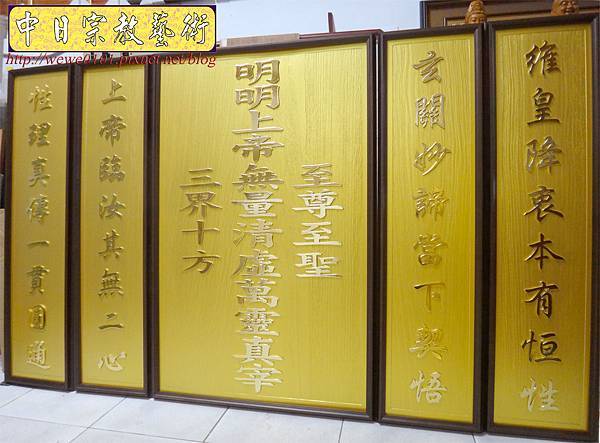 中日宗教藝術
http://wewe0141.pixnet.net/blog
維皇降衷本有恒性
玄關妙諦當下契悟
至尊至聖
明明上帝無量清虛萬靈真宰
三界十方
上帝臨汝其無二心
性理真傳一貫圓通